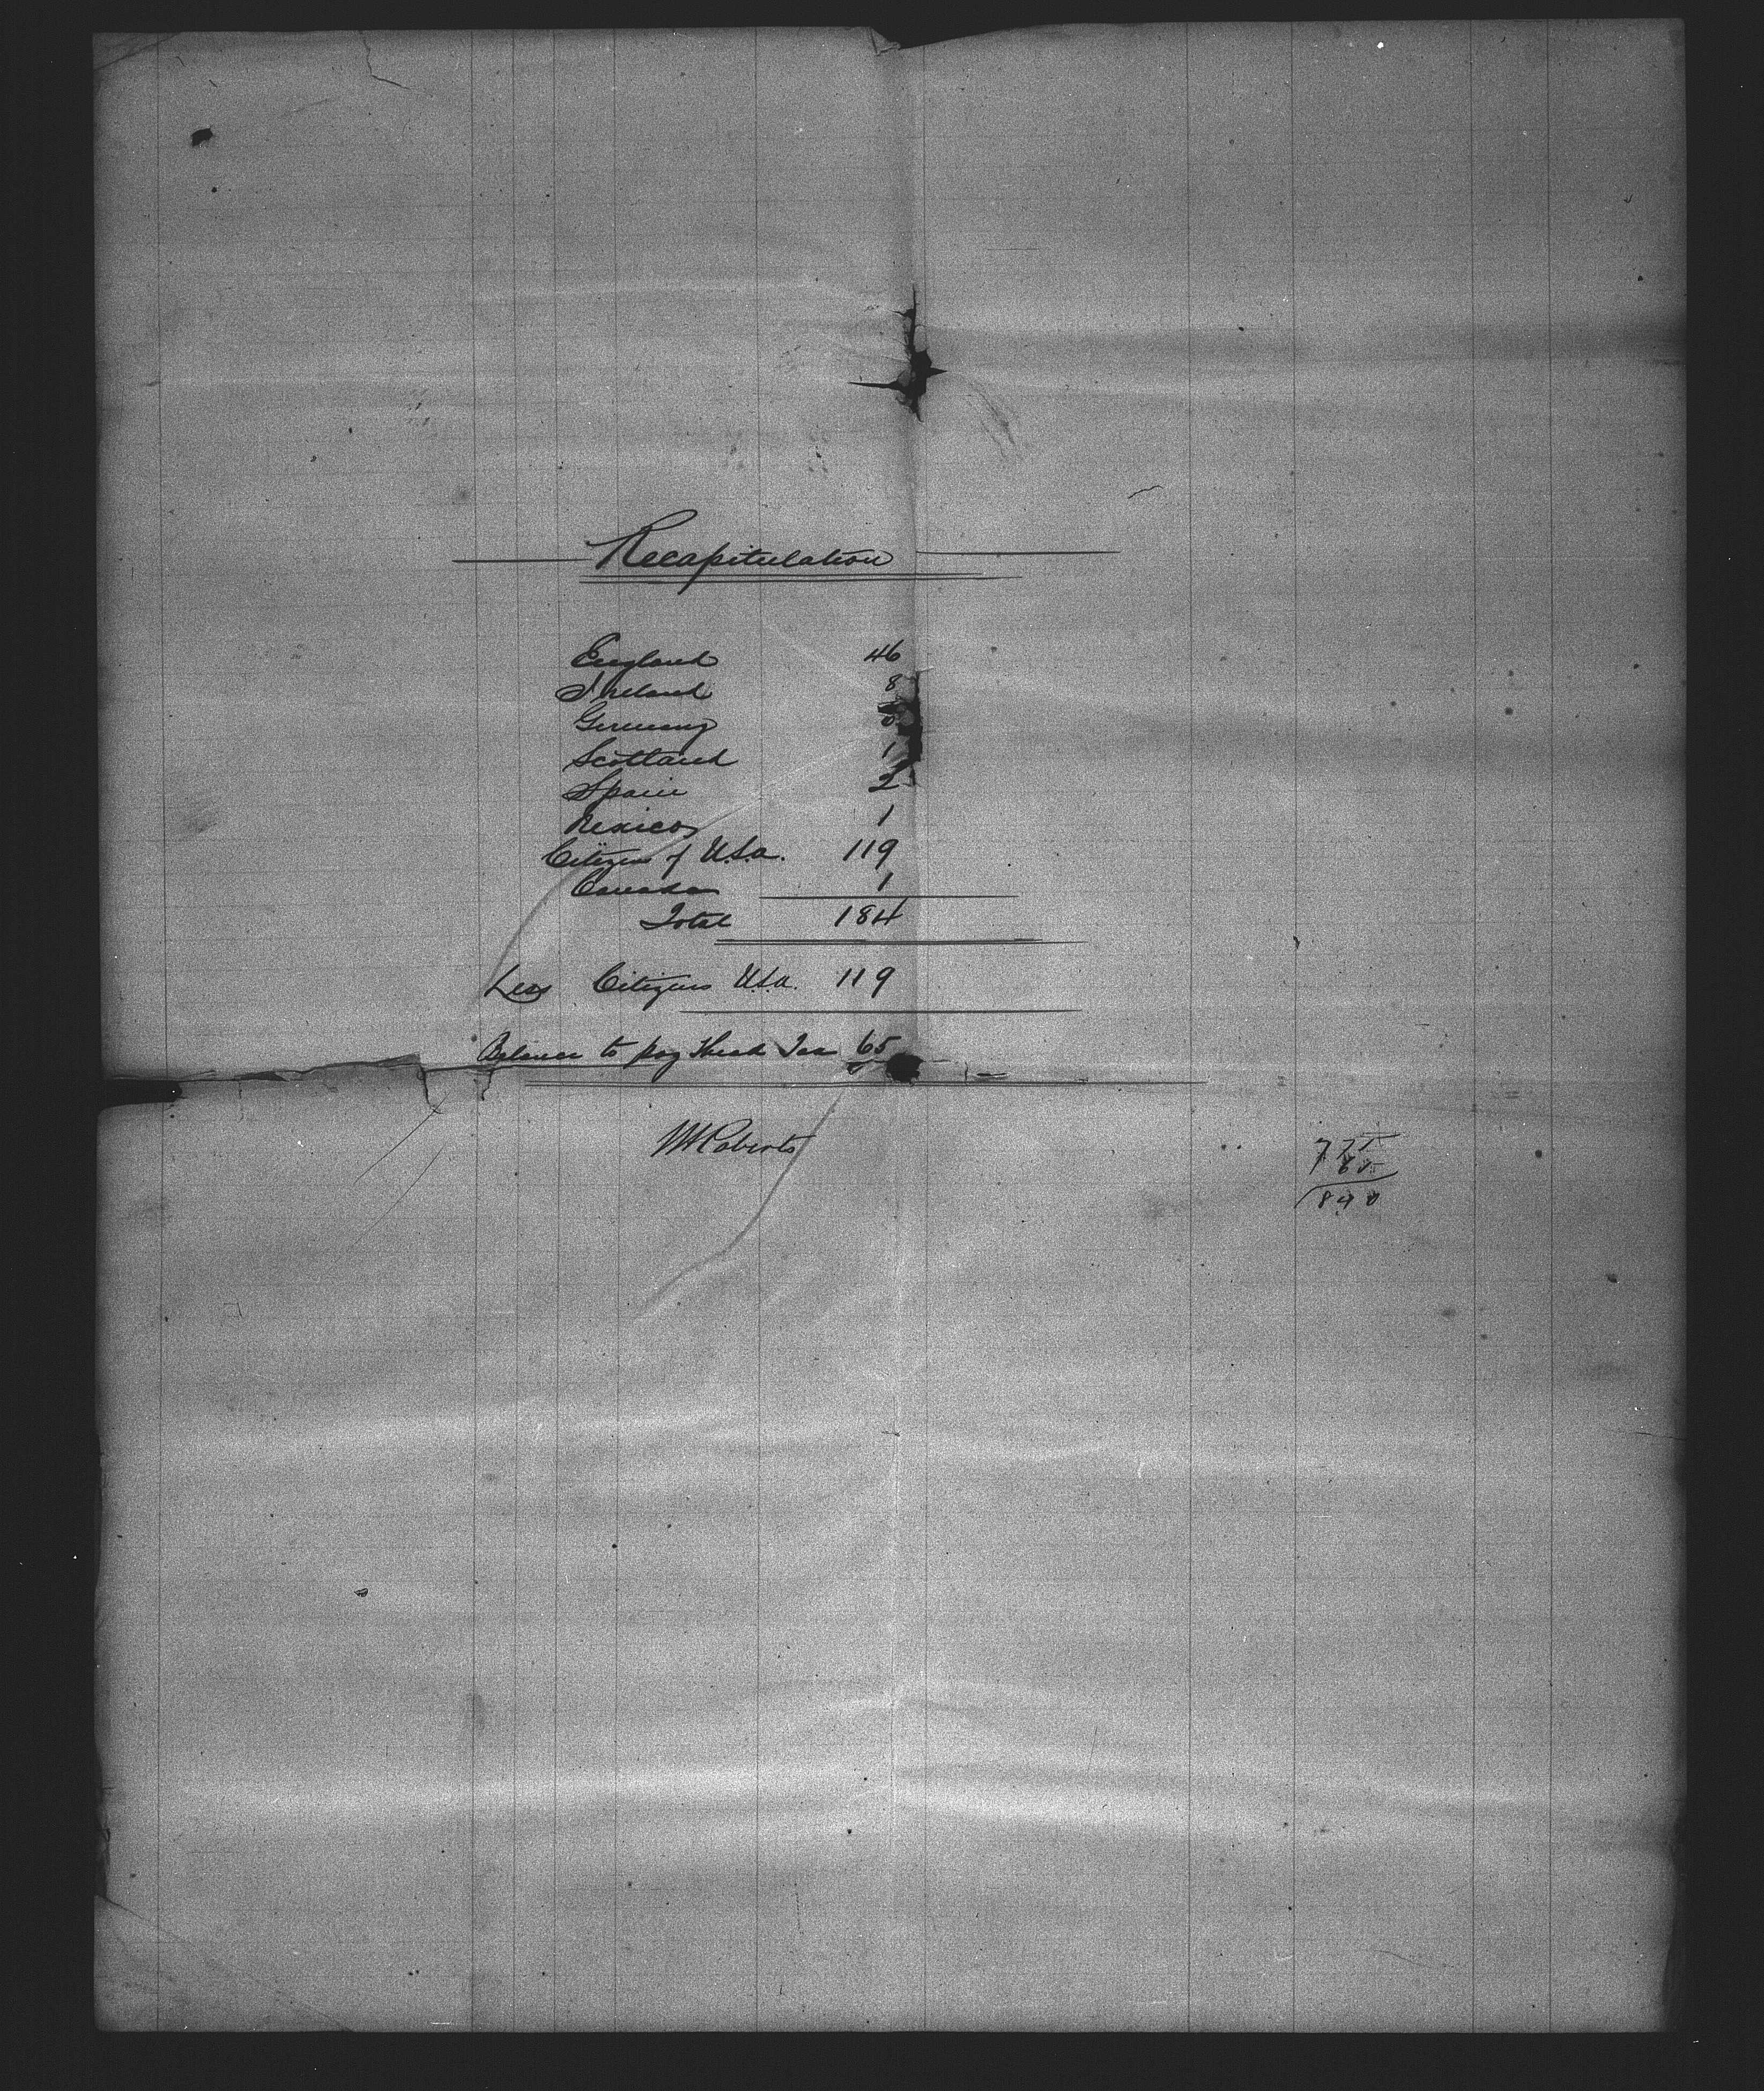 Recapitulation
England 46
Ireland 8
Germany 6
Scotland 1
Spain 2
Mexico 1
Citizens of U.S.a. 119
Canada 1
Total 184
Less Citizens U.S.a. 119
Balance to pay Head Tax 65
WHRoberts
775
65
840